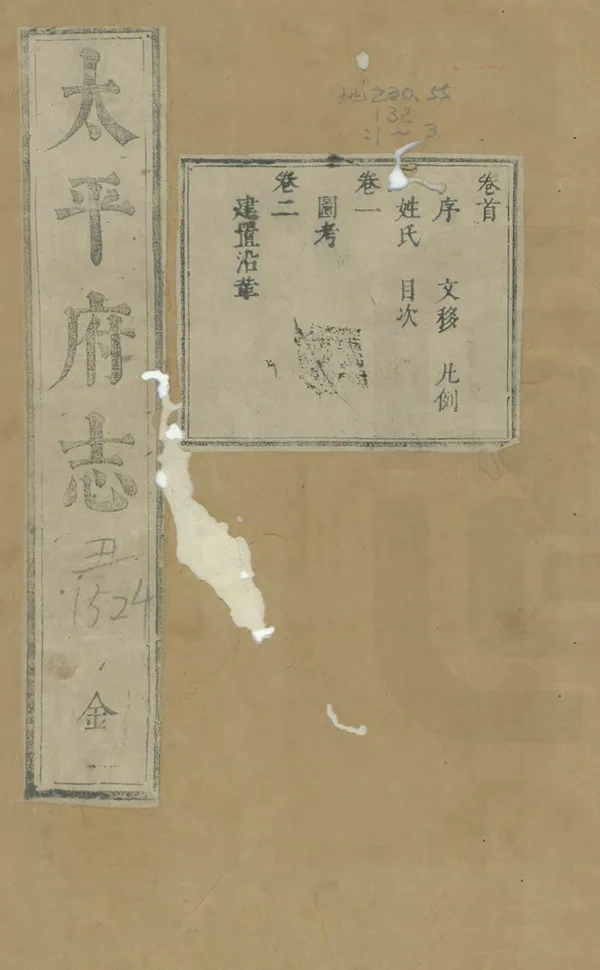 太平府志
丑
1524
金
一
地230.55
132
:1~3
卷首
序 文移 凡例
姓氏 目次
卷一
圖考
卷二
建置沿革